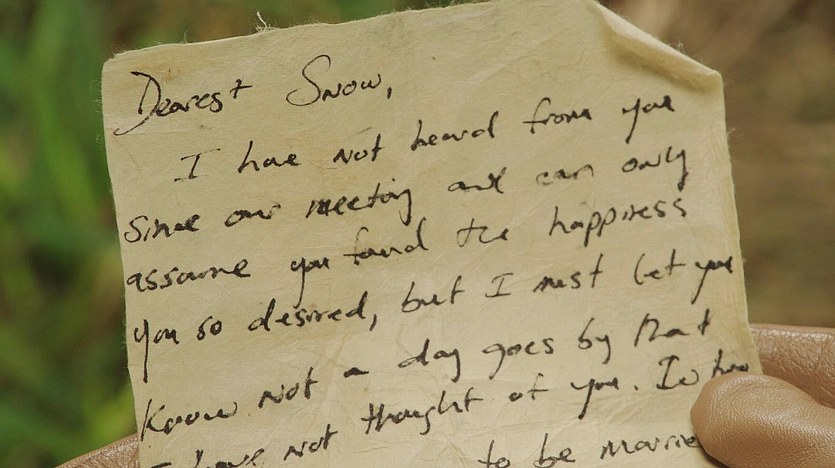 Dearest Snow,
I have not heard from you
since our meeting and can only
assume you found the happiness
you so desired, but I must let you
know not a day goes by that
I have not thought of you. I
to be married